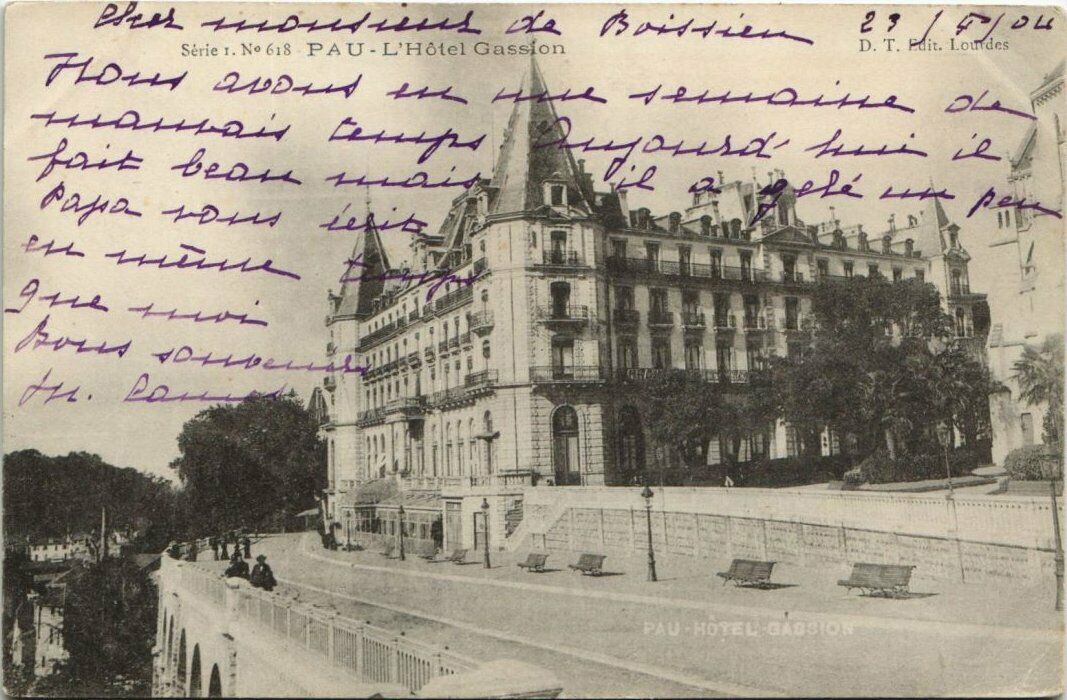 Cher monsieur de Boissieu 23/5/04
Série 1. Nº 618 PAU - L'Hôtel Gassion
D. T. Edit. Lourdes
Nous avons eu une semaine de
mauvais temps Aujourd'hui il
fait beau mais il a gelé un peu
Papa vous écrit
en même temps
que moi
Bons souvenirs
PAU-HOTEL GASSION